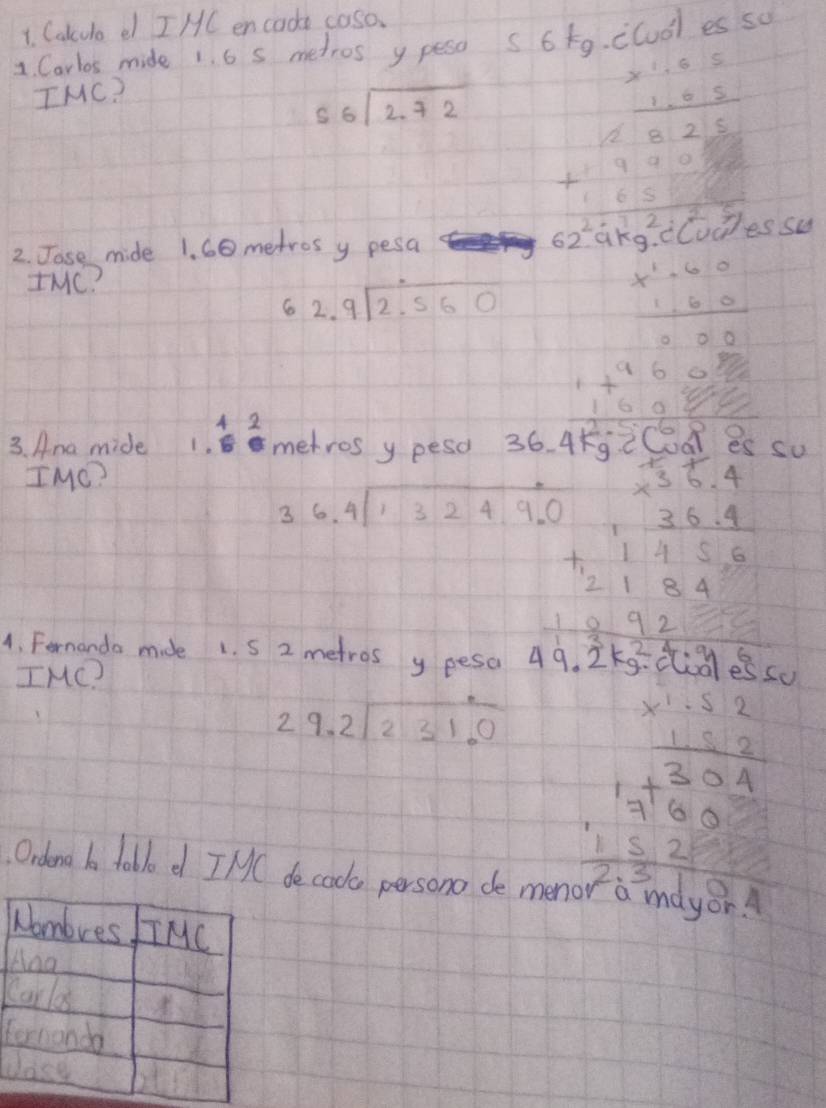 1. Calculo el IMC en cada caso.
1. Carlos mide 1.65 metros y peso 56 kg. ¿Cuól es su
IMC?
56 2.72
x 1.65
1.65
825
990
+ 165
2. Jose mide 1.60 metros y pesa 62.9 kg. ¿Cual es su
IMC?
62.9 2.560
x 1.60
1.60
000
+ 960
160
3. Ana mide 1.42 metros y pesa 36.4 kg. ¿Cual es su
IMC?
36.4 132 4 9.0
x 36.4
36.4
+ 145.6
2184
1092
4. Fernanda mide 1.52 metros y pesa 49.2 kg. ¿Cual es su
IMC?
29.2 231.0
x 1.52
152
+ 304
760
152
2.3 4
.Ordena la tabla el IMC de cada persona de menor a mayor.
Nombres IMC
Ana
Carlos
Fernanda
Jose